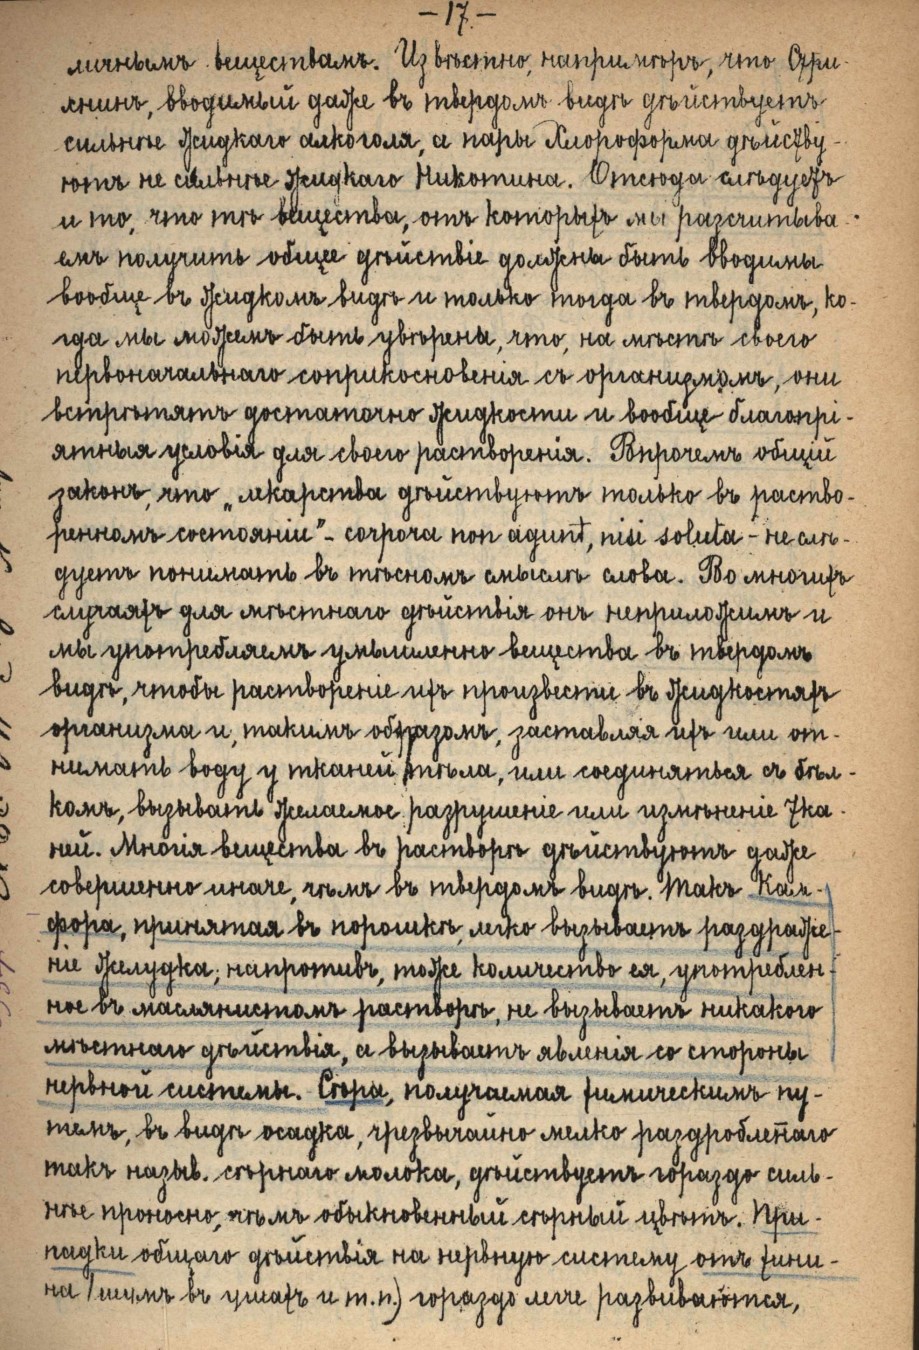 —17.—
личнымъ веществамъ. Извѣстно, напримѣръ, что Стри-
хнинъ, вводимый даже въ твердомъ видѣ дѣйствуетъ
сильнѣе жидкаго алкоголя, а пары Хлороформа дѣйству-
ютъ не сильнѣе жидкаго Никотина. Отсюда слѣдуетъ
и то, что тѣ вещества, отъ которыхъ мы разсчитыва-
емъ получить общее дѣйствіе должны быть вводимы
вообще въ жидкомъ видѣ и только тогда въ твердомъ, ко-
гда мы можемъ быть увѣрены, что, на мѣстѣ своего
первоначальнаго соприкосновенія съ организмомъ, они
встрѣтятъ достаточно жидкости и вообще благопрі-
ятныя условія для своего растворенія. Впрочемъ общій
законъ, что „лекарства дѣйствуютъ только въ раство-
ренномъ состояніи" - corpora non agunt, nisi soluta - не слѣ-
дуетъ понимать въ тѣсномъ смыслѣ слова. Во многихъ
случаяхъ для мѣстнаго дѣйствія онъ неприложимъ и
мы употребляемъ умышленно вещества въ твердомъ
видѣ, чтобы раствореніе ихъ произвести въ жидкостяхъ
организма и, такимъ образомъ, заставляя ихъ или от-
нимать воду у тканей тѣла, или соединяться съ бѣл-
комъ, вызывать желаемое разрушеніе или измѣненіе тка-
ней. Многія вещества въ растворѣ дѣйствуютъ даже
совершенно иначе, чѣмъ въ твердомъ видѣ. Такъ Кам-
фора, принятая въ порошкѣ, легко вызываетъ раздраже-
ніе желудка; напротивъ, тоже количество ея, употреблен-
ное въ маслянистомъ растворѣ, не вызываетъ никакого
мѣстнаго дѣйствія, а вызываетъ явленія со стороны
нервной системы. Сѣра, получаемая химическимъ пу-
темъ, въ видѣ осадка, чрезвычайно мелко раздробленнаго
такъ назыв. сѣрнаго молока, дѣйствуетъ гораздо силь-
нѣе проносно, чѣмъ обыкновенный сѣрный цвѣтъ. При-
падки общаго дѣйствія на нервную систему отъ хини-
на /шумъ въ ушахъ и т.п.) гораздо легче развиваются,